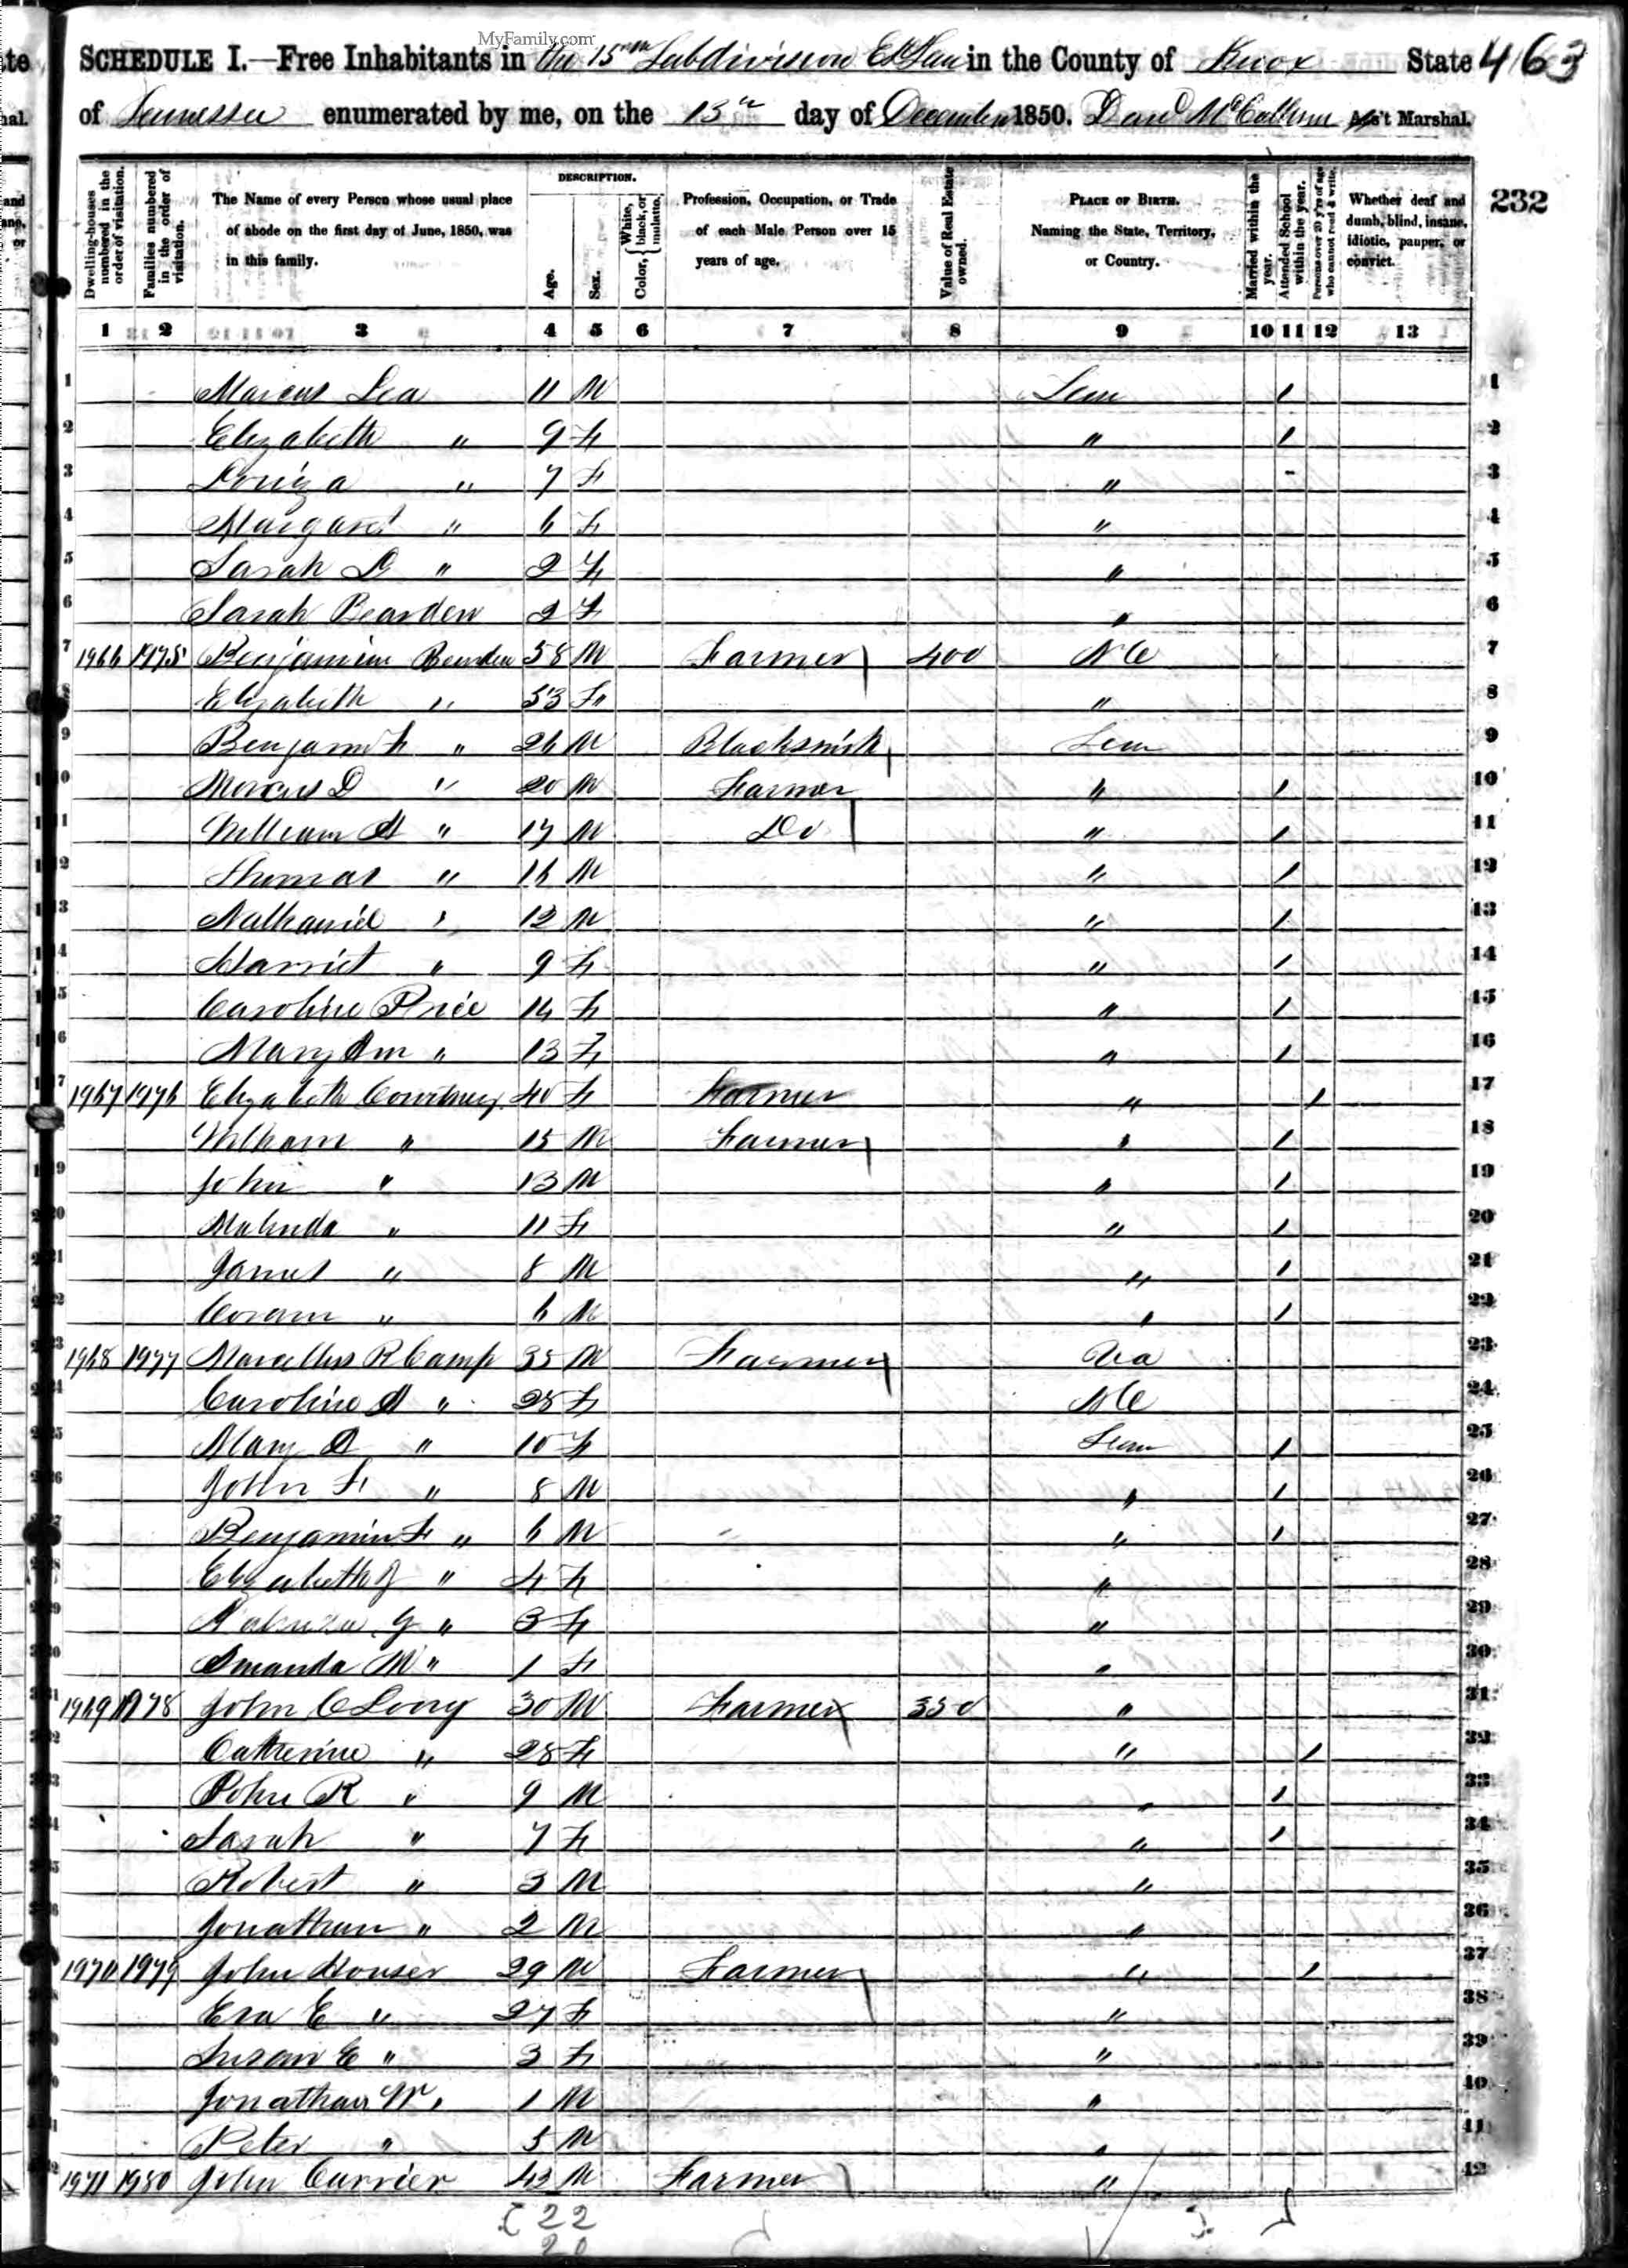 MyFamily.com
SCHEDULE I.—Free Inhabitants in the 15th Subdivision in the County of Knox State 463
of Tennessee enumerated by me, on the 13th day of December 1850. Dan McCallum Ass't Marshal.
232
Dwelling-houses numbered in the order of visitation.
Families numbered in the order of visitation.
The Name of every Person whose usual place of abode on the first day of June, 1850, was in this family.
DESCRIPTION.
Age.
Sex.
Color, { White, black, or mulatto.
Profession, Occupation, or Trade of each Male Person over 15 years of age.
Value of Real Estate owned.
PLACE OF BIRTH. Naming the State, Territory, or Country.
Married within the year.
Attended School within the year.
Persons over 20 y'rs of age who cannot read & write.
Whether deaf and dumb, blind, insane, idiotic, pauper, or convict.
1 2 3 4 5 6 7 8 9 10 11 12 13
1 Marcus Lea 11 M Tenn 1 1
2 Elizabeth " 9 F " 1 2
3 Louiza " 7 F " - 3
4 Margaret " 6 F " 4
5 Sarah D " 2 F " 5
6 Sarah Bearden 2 F " 6
7 1966 1975 Benjamin Bearden 58 M Farmer 400 NC 7
8 Elizabeth " 53 F " 8
9 Benjamin F " 26 M Blacksmith Tenn 9
10 Marcus D " 20 M Farmer " 1 10
11 William A " 17 M Do " 1 11
12 Thomas " 16 M " 1 12
13 Nathaniel " 12 M " 1 13
14 Harriet " 9 F " 1 14
15 Caroline Price 14 F " 1 15
16 Mary Ann " 13 F " 1 16
17 1967 1976 Elizabeth Courtney 40 F Farmer " 1 17
18 William " 15 M Farmer " 1 18
19 John " 13 M " 1 19
20 Malinda " 11 F " 1 20
21 James " 8 M " 1 21
22 Coram " 6 M " 1 22
23 1968 1977 Marcellus R Camp 35 M Farmer Va 23
24 Caroline A " 28 F NC 24
25 Mary A " 10 F Tenn 1 25
26 John F " 8 M " 1 26
27 Benjamin F " 6 M " 1 27
28 Elizabeth J " 4 F " 28
29 G " 3 F " 29
30 Amanda M " 1 F " 30
31 1969 1978 John C Long 30 M Farmer 350 " 31
32 Catherine " 28 F " 1 32
33 John R " 9 M " 1 33
34 Sarah " 7 F " 1 34
35 Robert " 3 M " 35
36 Jonathan " 2 M " 36
37 1970 1979 John Houser 29 M Farmer " 1 37
38 Eva E " 27 F " 38
39 Susan E " 3 F " 39
40 Jonathan W " 1 M " 40
41 Peter " 5 M " 41
42 1971 1980 John Currier 43 M Farmer " 42
22
20